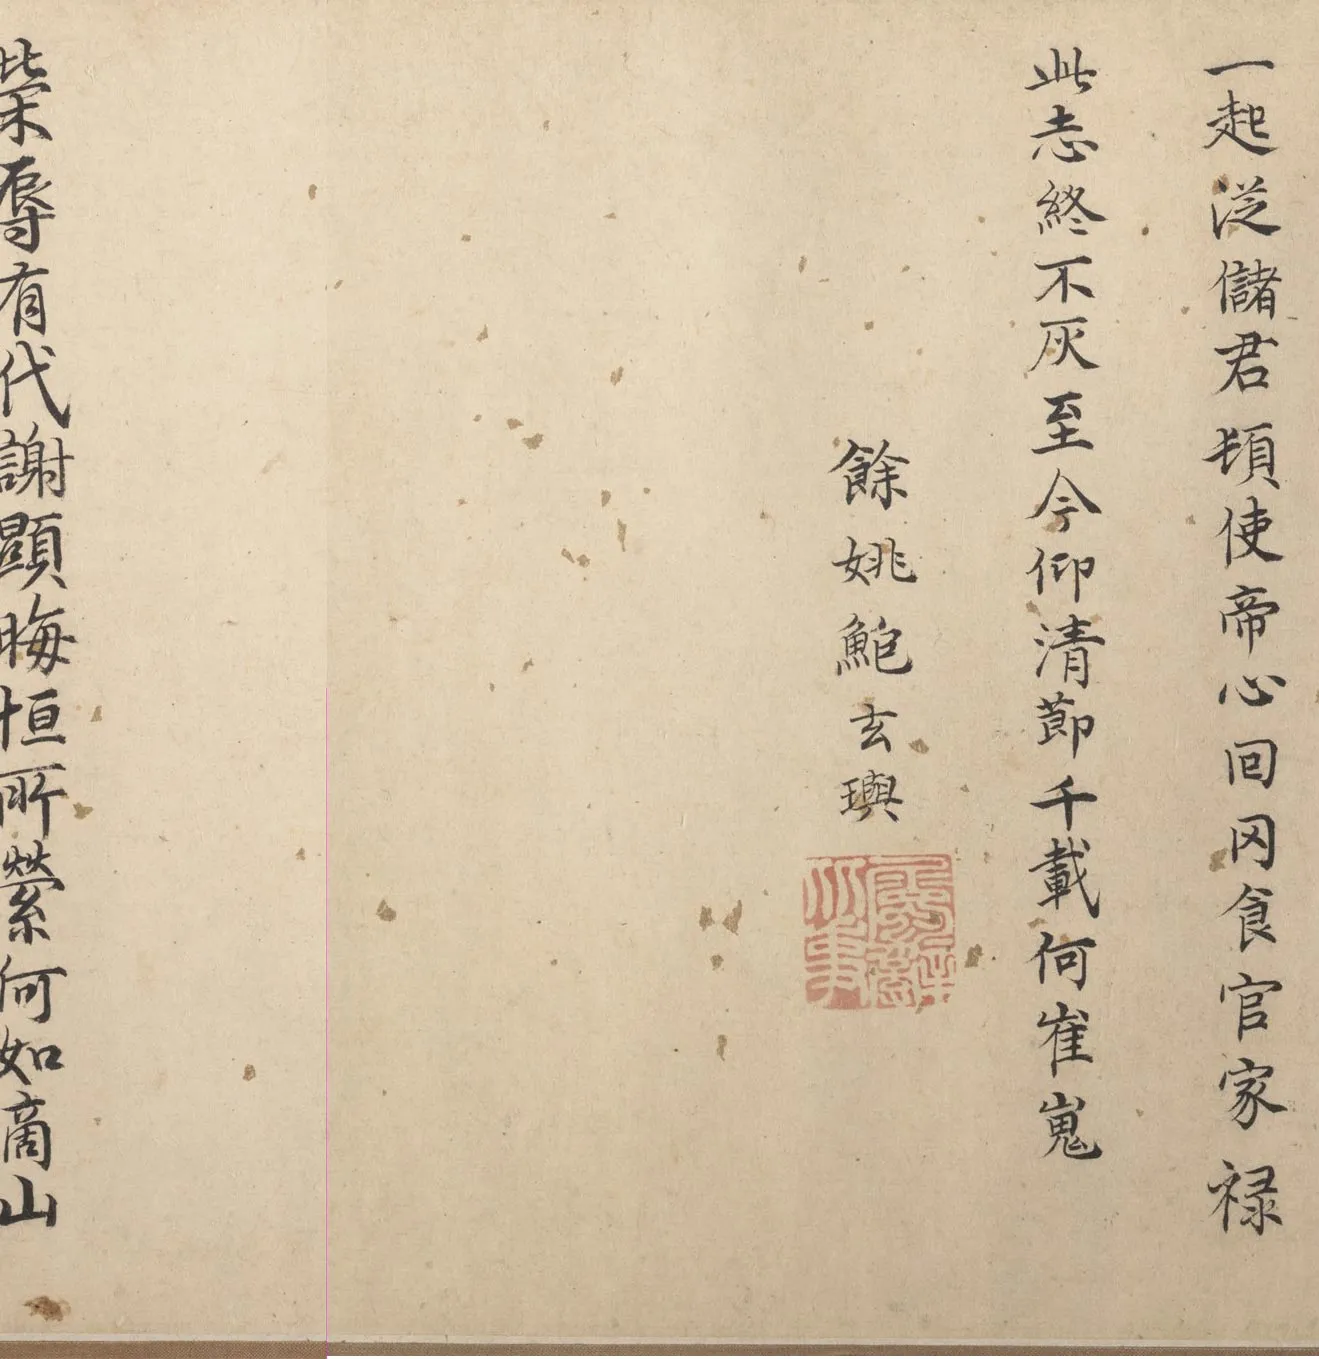 一起從儲君頓使帝心回冈食官家禄
此志終不灰至今仰清節千載何崔嵬
餘姚鮑玄璵
榮辱有代謝顯晦恒所縈何如商山